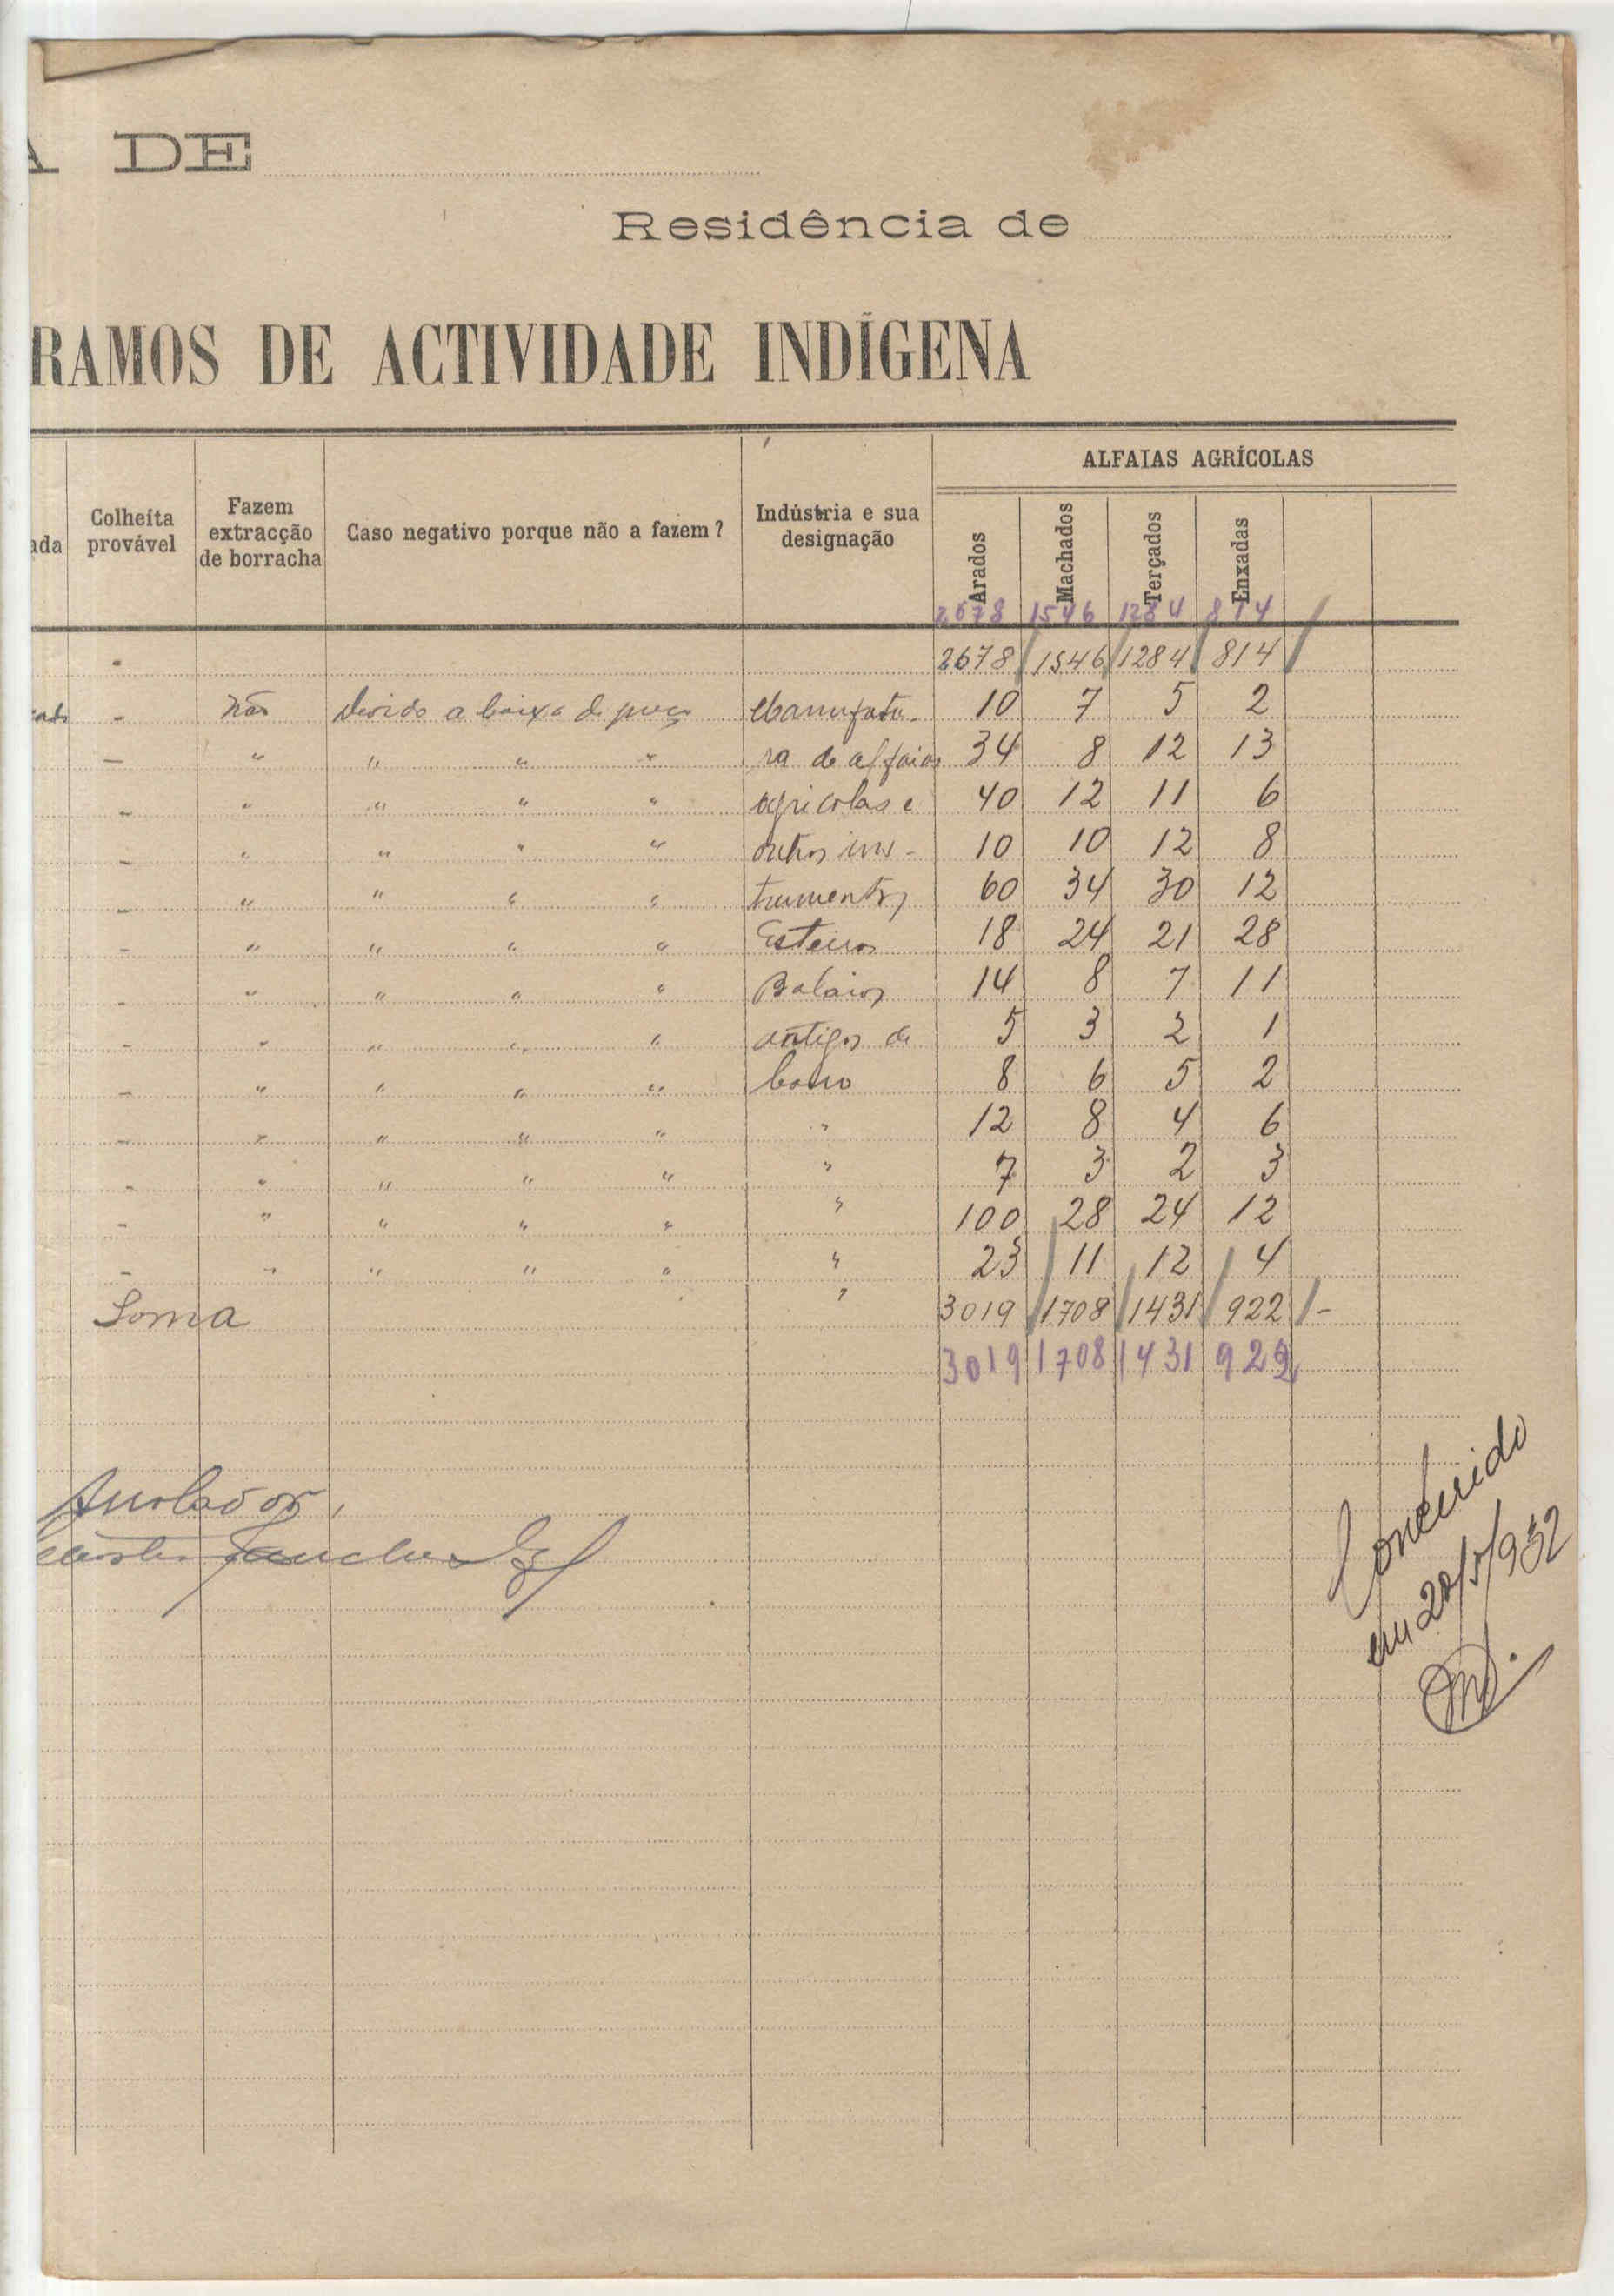 A DE
Residência de
RAMOS DE ACTIVIDADE INDÍGENA
ada
Colheita provável
Fazem extracção de borracha
Caso negativo porque não a fazem?
Indústria e sua designação
ALFAIAS AGRÍCOLAS
Arados Machados Terçados Enxadas
2678 1546 1284 814
- 2678 1546 1284 814
- não devido a baixa de preço Manufatu- 10 7 5 2
— " " " " ra de alfaias 34 8 12 13
- " " " " agricolas e 40 12 11 6
- " " " " outros ins- 10 10 12 8
- " " " " trumentos 60 34 30 12
- " " " " Esteiras 18 24 21 28
- " " " " Balaios 14 8 7 11
- " " " " artigos de 5 3 2 1
- " " " " barro 8 6 5 2
- " " " " " 12 8 4 6
- " " " " " 7 3 2 3
- " " " " " 100 28 24 12
- " " " " " 23 11 12 4
Soma " 3019 1708 1431 922 -
3019 1708 1431 922
Arrolador,
Concluido
em 20/5/932